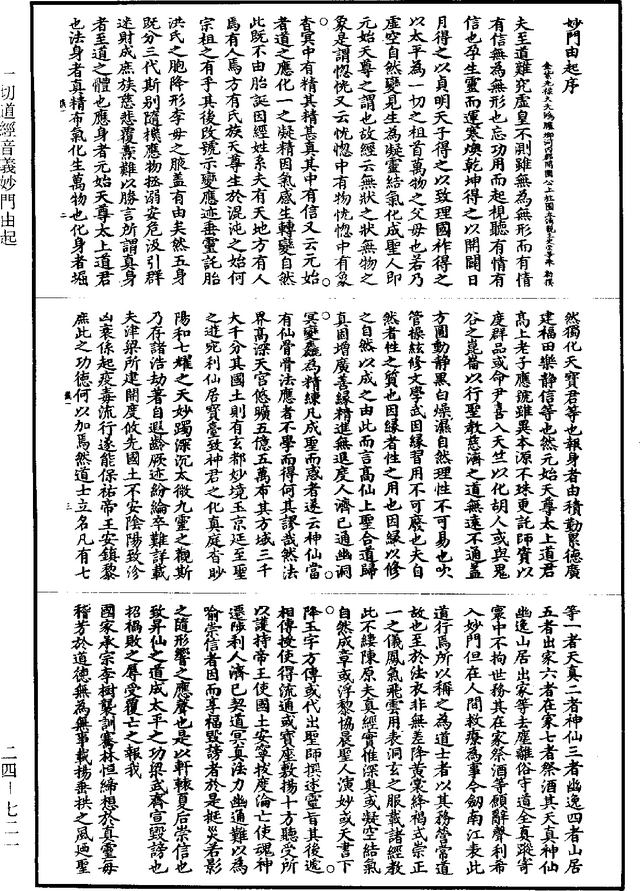 妙門由起序
金紫光祿大夫鴻臚卿河南縣開國公上柱國太清觀主史崇等奉 勅撰
夫至道難究虛皇不測雖無為無形而有情
有信無為無形也忘功用而起視聽有情有
信也孕生靈而運寒煥乾坤得之以開闢日
月得之以貞明天子得之以致理國祚得之
以太平為一切之祖首萬物之父母也若乃
虛空自然變見生為凝靈結氣化成聖人即
元始天尊之謂也故經云無狀之狀無物之
象是謂惚恍又云恍惚中有物恍惚中有象
杳冥中有精其精甚真其中有信又云元始
者道之應化一之凝精因氣感生轉變自然
此既不由胎誕因經姓系夫有天地方有人
焉有人焉方有氏族天尊生於混沌之始何
宗祖之有乎其後改號示變應迹垂靈託胎
洪氏之胞降形李母之腋蓋有由矣然五身
既分三代斯別隨機應物拯溺安危汲引群
迷財成庶族慈悲覆燾難以勝言所謂真身
者至道之體也應身者元始天尊太上道君
也法身者真精布氣化生萬物也化身者堀
然獨化天寶君等也報身者由積勤累德廣
建福田樂靜信等也然元始天尊太上道君
高上老子應號雖異本源不殊更託師資以
度群品或命尹喜入天竺以化胡人或與鬼
谷之崑崙以行聖教慈濟之道無遠不通蓋
方圓動靜黑白燥濕自然理性不可易也吹
管操絃修文學武因緣習用不可廢也夫自
然者性之質也因緣者性之用也因緣以修
之自然以成之由此而言高仙上聖合道歸
真固增廣善緣精進無退度人濟己通幽洞
冥變麤為精練凡成聖而惑者遂云神仙當
有仙骨骨法應者不學而得何其謬哉然法
界高深天宮悠曠五億五萬布其方域三千
大千分其國土則有玄都妙境玉京廷至聖
之遊宛利仙居寶臺致神君之化真庭杳眇
陽和七耀之天妙躅深沉太微九靈之觀斯
乃存諸浩劫著自遐齡厥迹紛綸卒難詳載
夫津梁所建開度攸先國土不安陰陽致沴
凶衰係起疫毒流行遂能保祐帝王安鎮黎
庶此之功德何以加焉然道士立名凡有七
等一者天真二者神仙三者幽逸四者山居
五者出家六者在家七者祭酒其天真神仙
幽逸山居出家等去塵離俗守道全真蹤寄
寰中不拘世務其在家祭酒等願辭聲利希
入妙門但在人間救療為事今劒南江表此
道行焉所以稱之為道士者以其務營常道
故也至於法衣非無差降黃裳絳褐式崇正
一之儀鳳氣飛雲用表洞玄之服載諸經教
此不繾陳原夫真經實惟深奧或凝空結氣
自然成章或浮黎協晨聖人演妙或天書下
降玉字方傳或代出聖師撰述靈旨其後遞
相傳授使得流通或寶座敷揚十方聽受所
以護持帝王使國土安寧拔度淪亡使魂神
遷陟利人濟己契道冥真法力幽通難以為
喻崇信者因而享福毀謗者於是挺災若影
之隨形響之應聲也是以軒轅夏后崇信也
致昇仙之道成太平之功梁武齊宣毀謗也
招禍敗之辱受覆亡之報我
國家承宗李樹襲訓騫林恒締想於真靈每
稽芳於道德無為無事載揚垂拱之風迺聖
一切道經音義妙門由起
二四－七二一